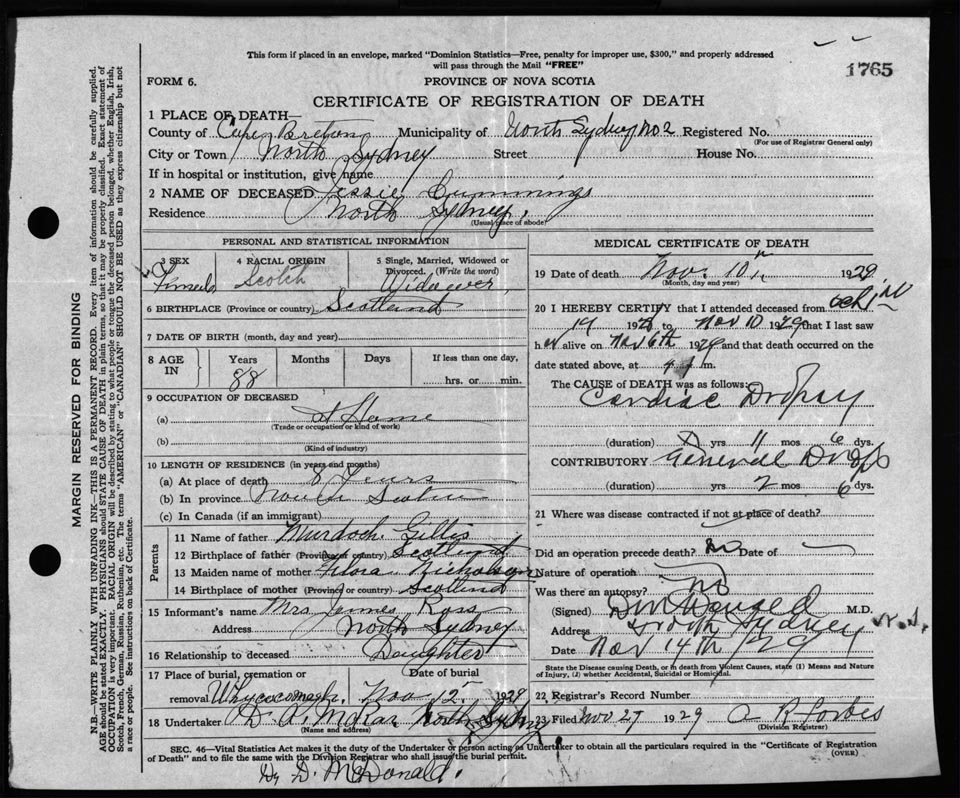 This form if placed in an envelope, marked "Dominion Statistics—Free, penalty for improper use, $300," and properly addressed
will pass through the Mail "FREE"
1765
FORM 6.
PROVINCE OF NOVA SCOTIA
CERTIFICATE OF REGISTRATION OF DEATH
1 PLACE OF DEATH
County of Cape Breton Municipality of North Sydney No 2 Registered No.
(For use of Registrar General only)
City or Town North Sydney Street House No.
If in hospital or institution, give name
2 NAME OF DECEASED Jessie Cummings
Residence North Sydney.
(Usual place of abode)
PERSONAL AND STATISTICAL INFORMATION
3 SEX 4 RACIAL ORIGIN 5 Single, Married, Widowed or
Divorced. (Write the word)
Female Scotch
6 BIRTHPLACE (Province or country) Scotland
7 DATE OF BIRTH (month, day and year)
8 AGE IN Years Months Days If less than one day,
88 hrs. or min.
9 OCCUPATION OF DECEASED
(a) At Home
(Trade or occupation or kind of work)
(b)
(Kind of industry)
10 LENGTH OF RESIDENCE (in years and months)
(a) At place of death 8 Years
(b) In province Nova Scotia
(c) In Canada (if an immigrant)
Parents
11 Name of father Murdoch Gillis
12 Birthplace of father (Province or country) Scotland
13 Maiden name of mother Flora Nicholson
14 Birthplace of mother (Province or country) Scotland
15 Informant's name Mrs James Ross
Address North Sydney
16 Relationship to deceased Daughter
17 Place of burial, cremation or Date of burial
removal Whycocomagh. Nov 12 1929
18 Undertaker North Sydney
(Name and address)
MEDICAL CERTIFICATE OF DEATH
19 Date of death Nov. 10th 1929
(Month, day and year)
20 I HEREBY CERTIFY that I attended deceased from
19 to Nov 10 1929 that I last saw
her alive on Nov 6th 1929 and that death occurred on the
date stated above, at m.
The CAUSE of DEATH was as follows:
Cardiac Dropsy
(duration) yrs 11 mos 6 dys.
CONTRIBUTORY General
(duration) yrs 2 mos 6 dys.
21 Where was disease contracted if not at place of death?
Did an operation precede death? No Date of
Nature of operation
Was there an autopsy? no
(Signed) M.D.
Address North Sydney N.S.
Date Nov 14th /29
State the Disease causing Death, or in death from Violent Causes, state (1) Means and Nature
of Injury, (2) whether Accidental, Suicidal or Homicidal.
22 Registrar's Record Number
23 Filed Nov 27 1929 A R Forbes
(Division Registrar)
SEC. 46—Vital Statistics Act makes it the duty of the Undertaker or person acting as Undertaker to obtain all the particulars required in the "Certificate of Registration
of Death" and to file the same with the Division Registrar who shall issue the burial permit.
(OVER)
D. McDonald.
MARGIN RESERVED FOR BINDING
N.B.—WRITE PLAINLY WITH UNFADING INK—THIS IS A PERMANENT RECORD. Every item of information should be carefully supplied.
AGE should be stated EXACTLY. PHYSICIANS should STATE CAUSE OF DEATH in plain terms, so that it may be properly classified. Exact statement of
OCCUPATION is very important. RACIAL ORIGIN will be described by stating to what people or tongue the deceased person belonged, whether English, Irish,
Scotch, French, German, Russian, Ruthenian, etc. The terms "AMERICAN" or "CANADIAN" SHOULD NOT BE USED as they express citizenship but not
a race or people. See instructions on back of Certificate.